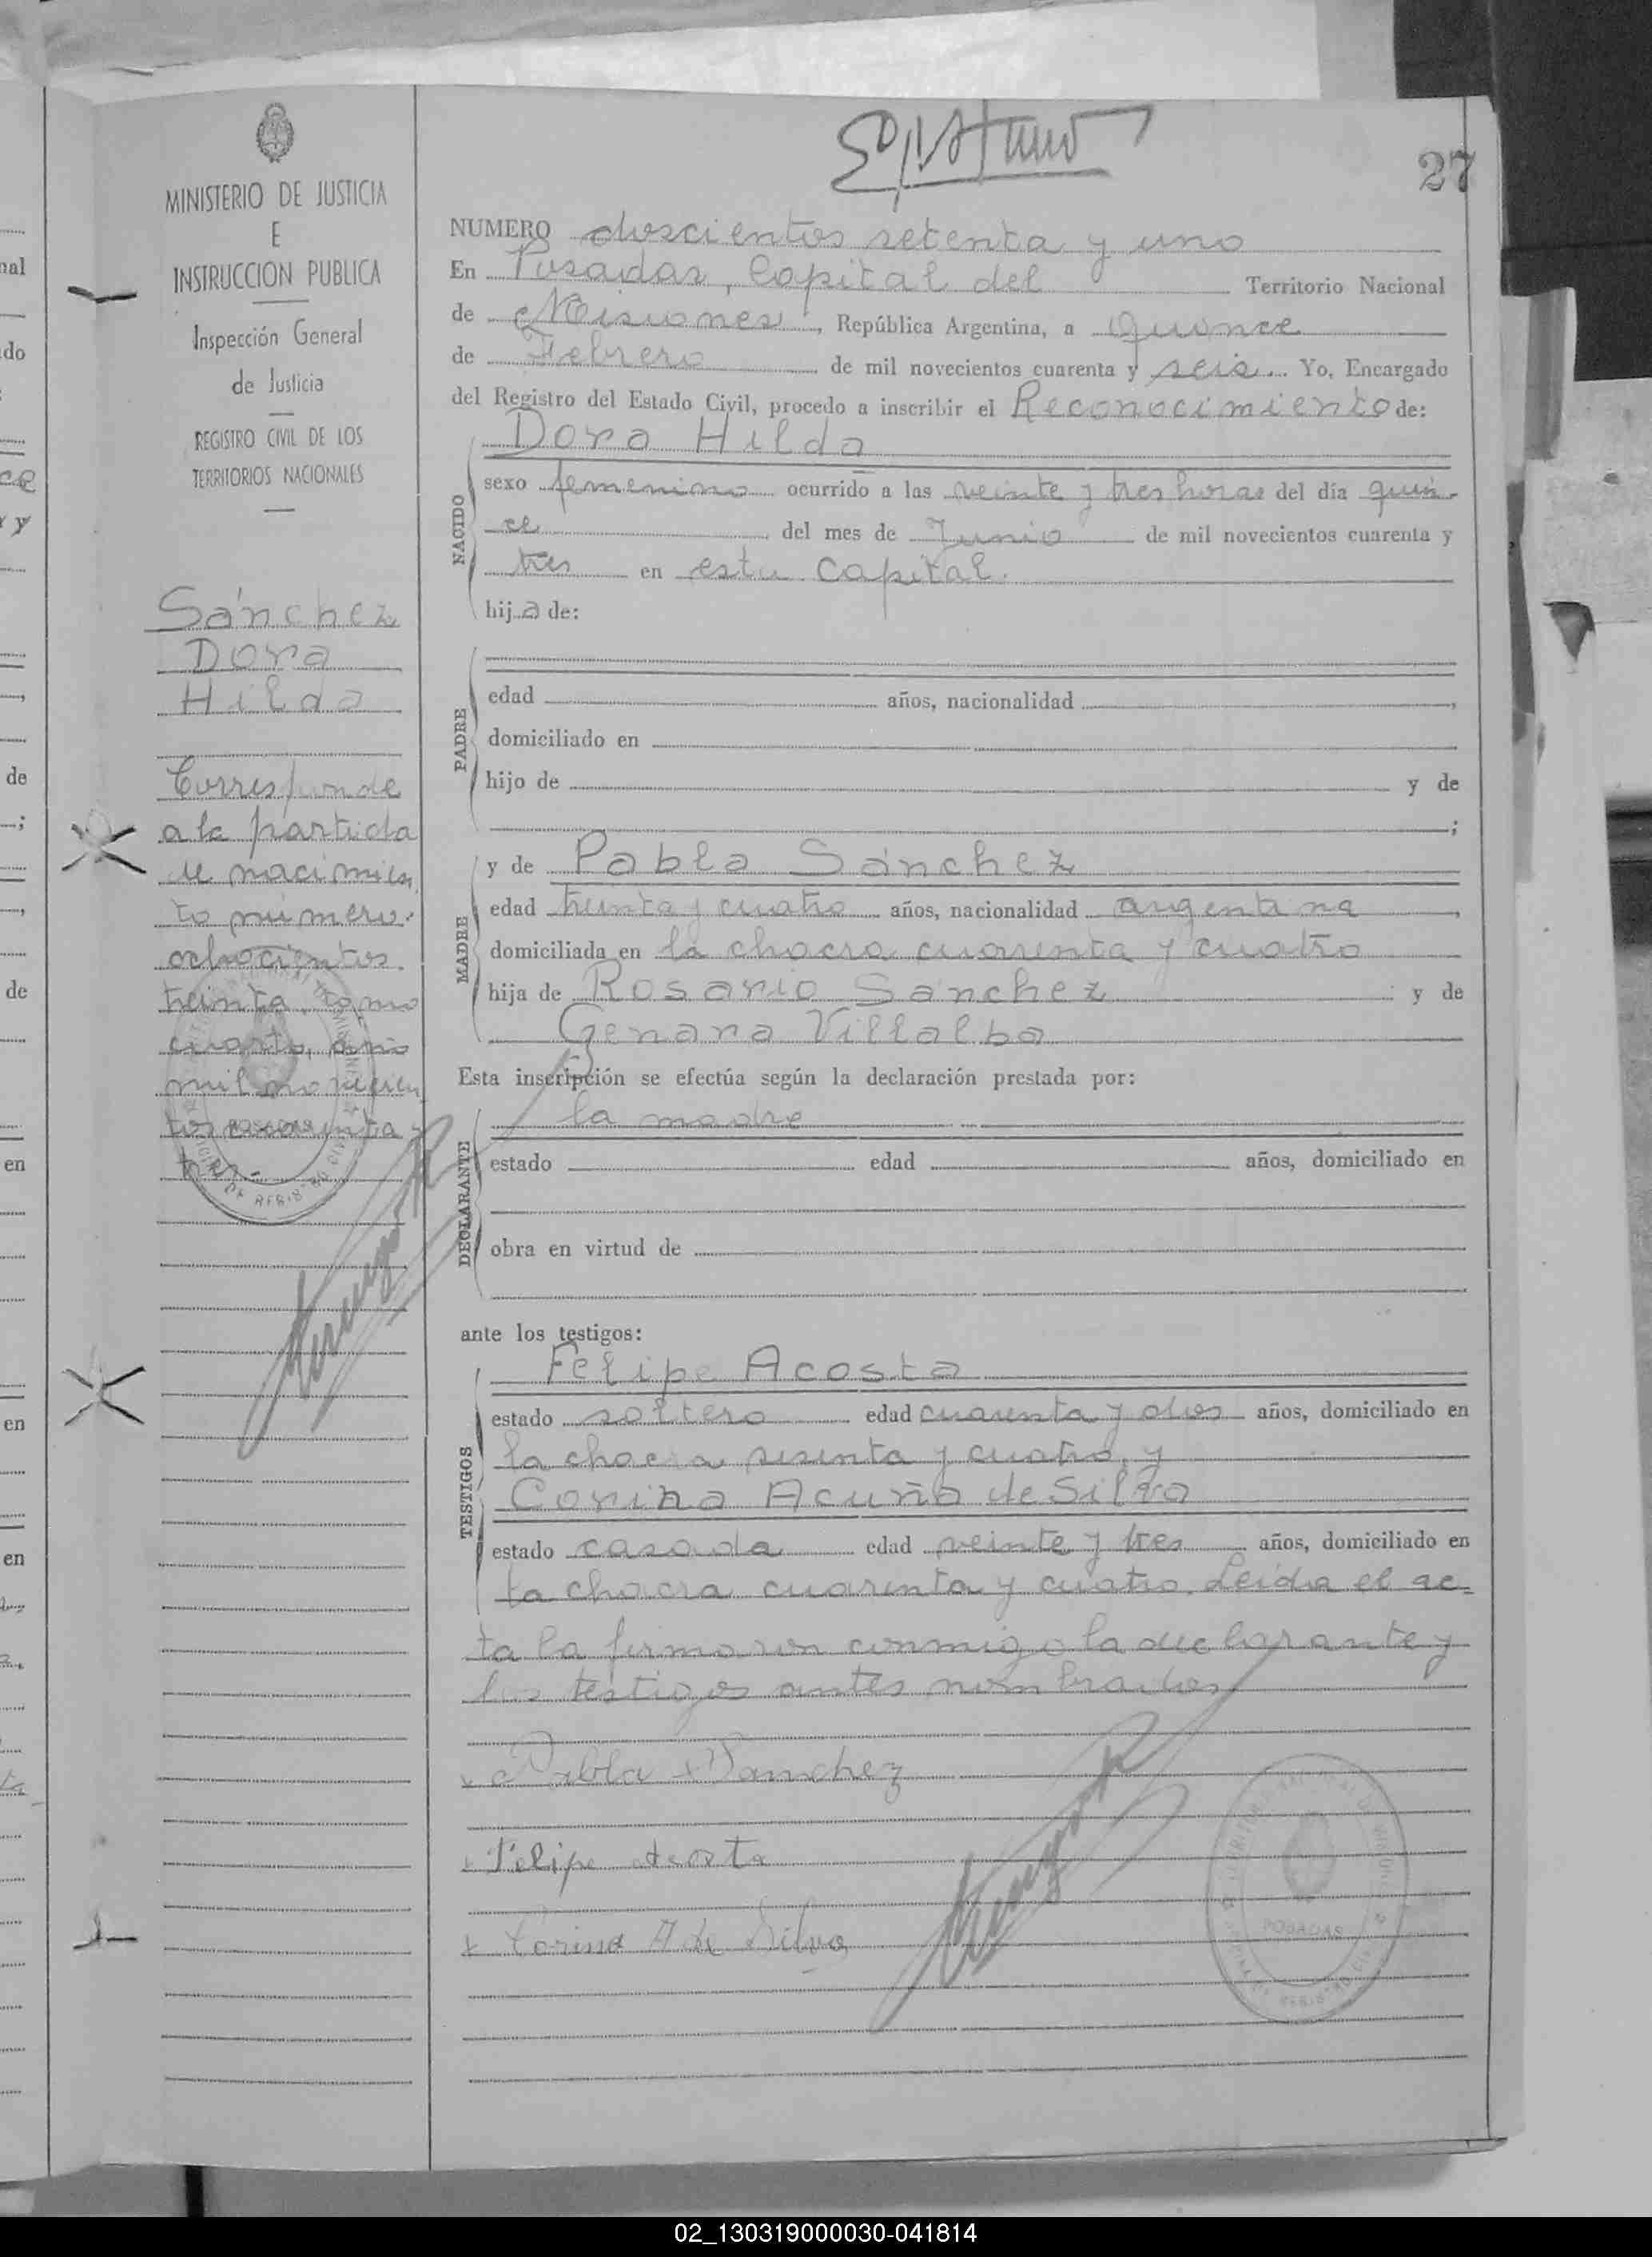 27
MINISTERIO DE JUSTICIA
E
INSTRUCCION PUBLICA
Inspección General
de Justicia
REGISTRO CIVIL DE LOS
TERRITORIOS NACIONALES
Sánchez
Dora
Hilda
Corresponde
a la partida
de nacimien
to número
ochocientos
treinta, tomo
cuarto, año
mil novecien
tos cuarenta y
tres.-
NUMERO doscientos setenta y uno
En Posadas, Capital del Territorio Nacional
de Misiones, República Argentina, a quince
de Febrero de mil novecientos cuarenta y seis. Yo, Encargado
del Registro del Estado Civil, procedo a inscribir el Reconocimiento de:
Dora Hilda
NACIDO
sexo femenino ocurrido a las veinte y tres horas del día quin-
ce del mes de Junio de mil novecientos cuarenta y
tres en esta Capital.
hija de:
PADRE
edad años, nacionalidad ,
domiciliado en
hijo de y de
;
MADRE
y de Pabla Sánchez
edad treinta y cuatro años, nacionalidad argentina ,
domiciliada en la chacra cuarenta y cuatro
hija de Rosario Sanchez y de
Genara Villalba
Esta inscripción se efectúa según la declaración prestada por:
DECLARANTE
la madre
estado edad años, domiciliado en
obra en virtud de
ante los testigos:
TESTIGOS
Felipe Acosta
estado soltero edad cuarenta y dos años, domiciliado en
la chacra sesenta y cuatro, y
Corina Acuña de Silva
estado casada edad veinte y tres años, domiciliado en
la chacra cuarenta y cuatro. Leída el ac-
ta la firmaron conmigo la declarante y
los testigos antes nombrados
Pabla Sanchez
Felipe Acosta
Corina A de Silva
POSADAS
02_130319000030-041814